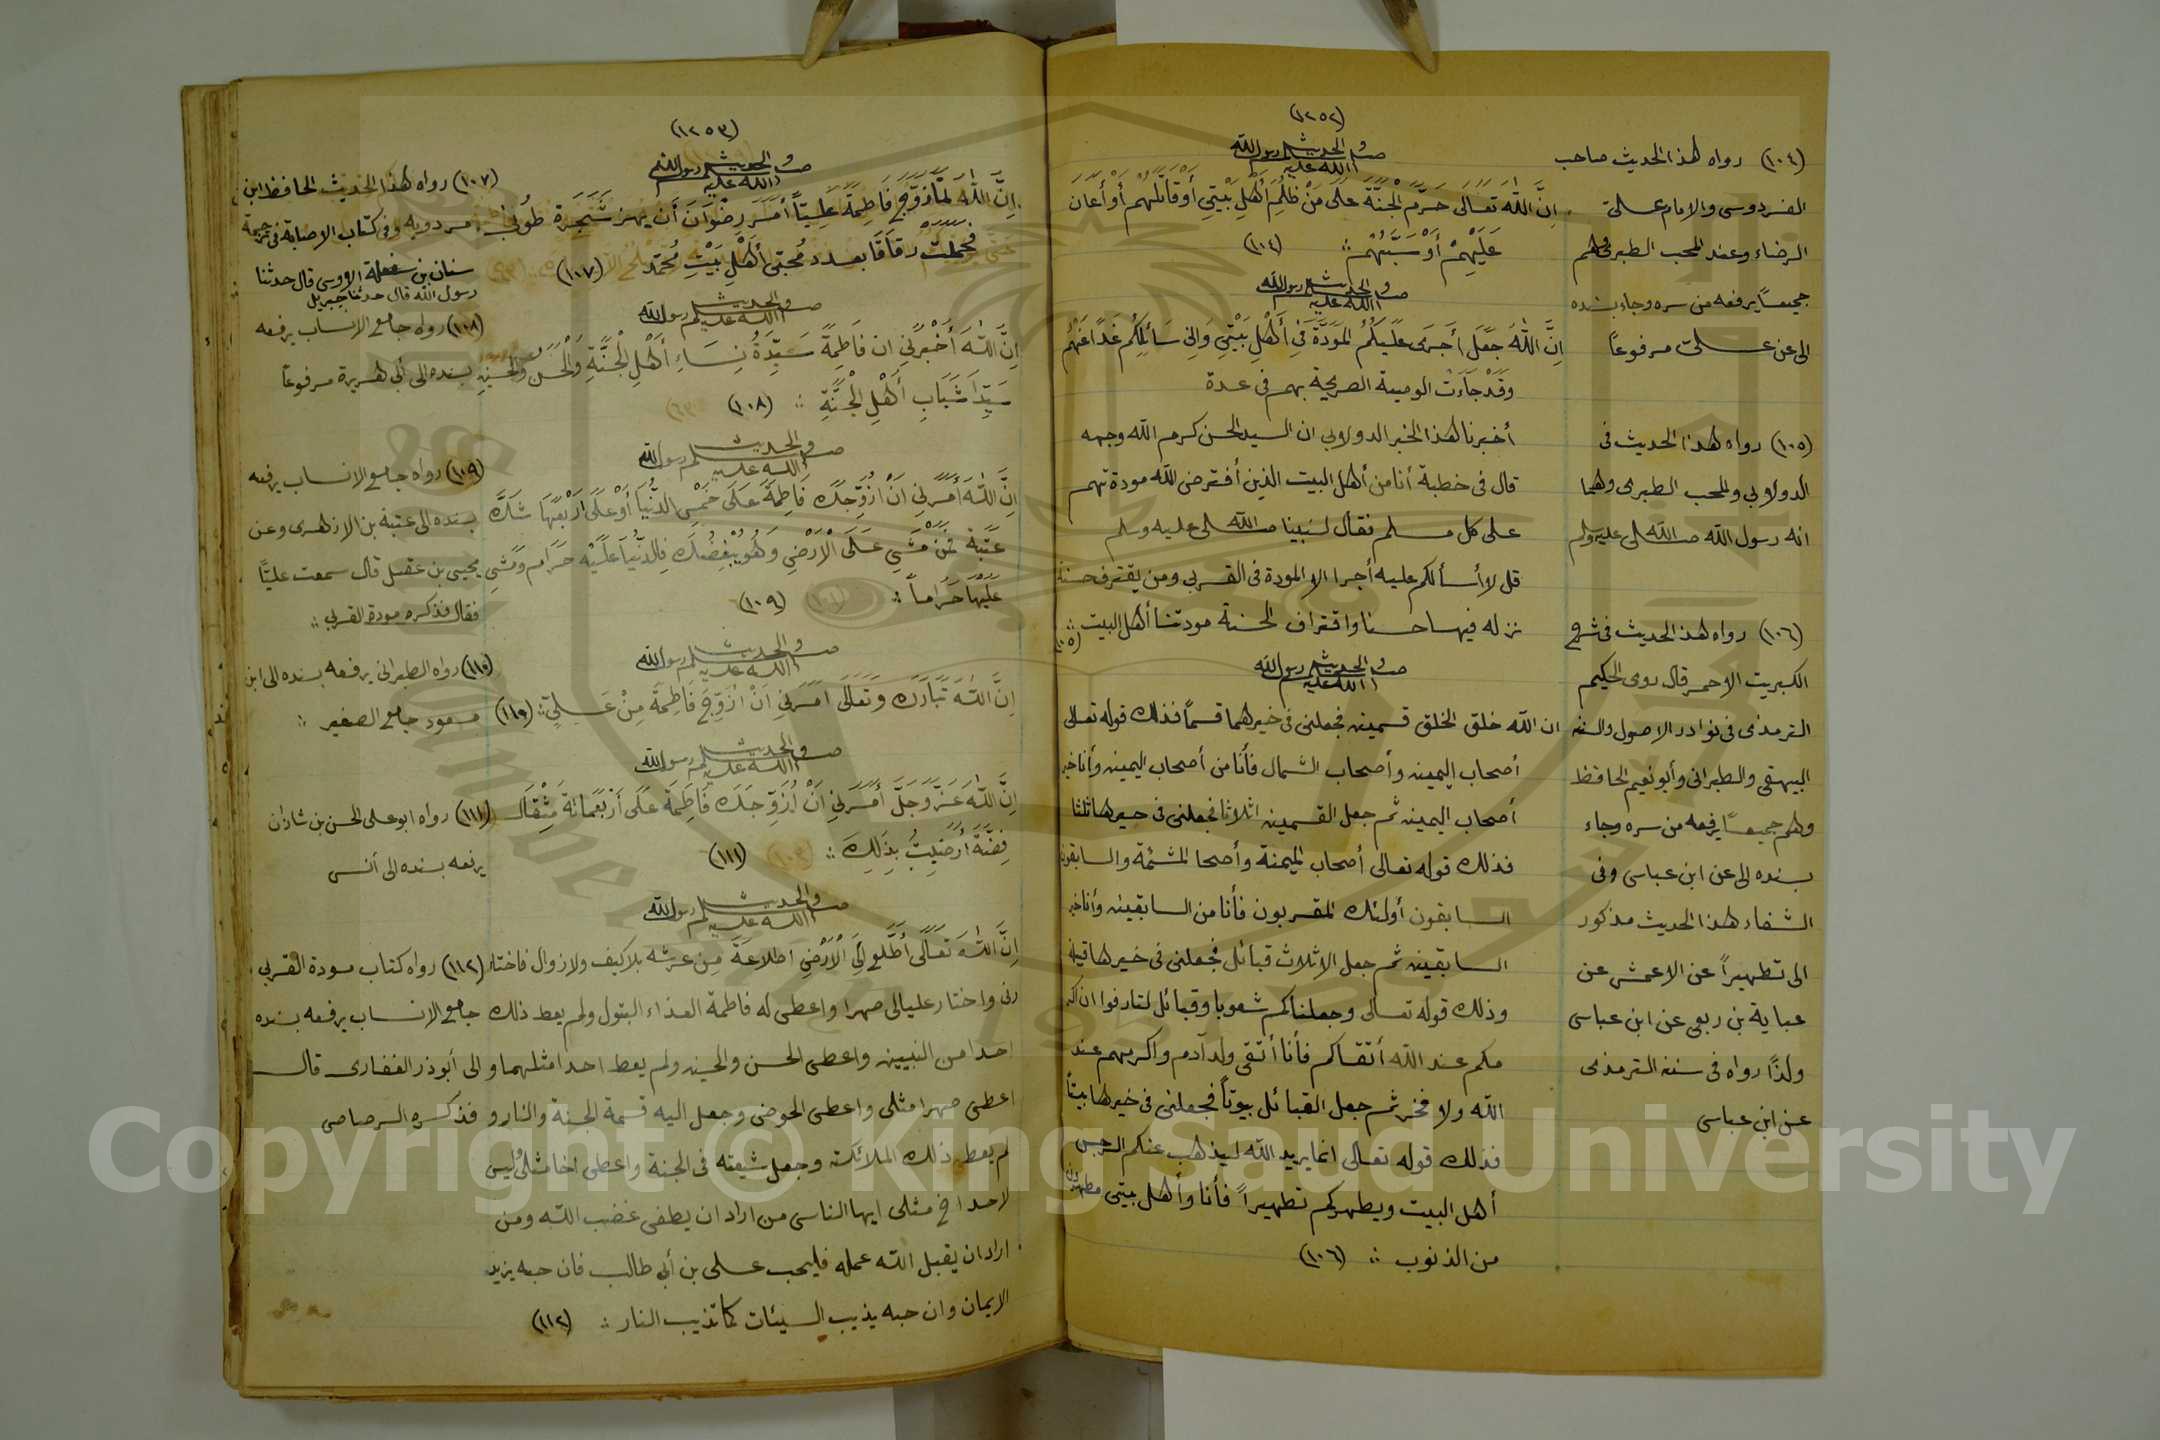 (١٢٥٢)
والحديث
رسول الله صلى الله عليه وسلم
إن الله تعالى حرم الجنة على من ظلم أهل بيتي أو قاتلهم أو أعان
عليهم أو سبهم ∴ (١٠٤)
والحديث
رسول الله صلى الله عليه وسلم
إن الله جعل أجرى عليكم المودة في أهل بيتي وإني سائلكم غدا عنهم
وقد جاءت الوصية الصريحة بهم في عدة
أخبرنا لهذا الخبر الدولابي ان السيد الحسن كرم الله وجهه
قال في خطبة أنا من أهل البيت الذين أفترض الله مودتهم
على كل مسلم فقال لنبينا صلى الله عليه وسلم
قل لا أسألكم عليه أجرا إلا المودة في القربى ومن يقترف حسنة
نزله فيها حسنا واقتراف الحسنة مودتنا أهل البيت ∴ (١٠٥)
والحديث
رسول الله صلى الله عليه وسلم
ان الله خلق الخلق قسمين فجعلني في خيرهما قسما فذلك قوله تعالى
أصحاب اليمين وأصحاب الشمال فأنا من أصحاب اليمين وأنا خير
أصحاب اليمين ثم جعل القسمين اثلاثا فجعلني في خيرها ثلثا
فذلك قوله تعالى أصحاب الميمنة وأصحا المشئمة والسابقون
السابقون أولئك المقربون فأنا من السابقين وأنا خير
السابقين ثم جعل الاثلاث قبائل فجعلني في خيرها قبيلة
وذلك قوله تعالى وجعلناكم شعوبا وقبائل لتعارفوا ان اكر
مكم عند الله أتقاكم فأنا أتقى ولد آدم واكرمهم عند
الله ولا فخر ثم جعل القبائل بيوتا فجعلني في خيرها بيتا
فذلك قوله تعالى انما يريد الله ليذهب عنكم الرجس
أهل البيت ويطهركم تطهيرا فأنا وأهل بيتي مطهرون
من الذنوب ∴ (١٠٦)
(١٠٤) رواه لهذا الحديث صاحب
الفردوسى والامام على
الرضاء وعند المحب الطبرى وهم
جميعا يرفعه من سره وجاء بسنده
الى عن على مرفوعا
(١٠٥) رواه لهذا الحديث فى
الدولابي والمحب الطبرى وهما
انه رسول الله صلى الله عليه وسلم
(١٠٦) رواه لهذا الحديث فى شرح
الكبريت الاحمر قال روى الحكيم
الترمذى فى نوادر الاصول والسنه
البيهقى والطبرانى وأبو نعيم الحافظ
وهم جميعا يرفعه من سره وجاء
بسنده الى عن ابن عباس وفى
الشفاء لهذا الحديث مذكور
الى تطهيرا عن الاعمش عن
عباية بن ربعى عن ابن عباس
ولذا رواه فى سننه الترمذى
عن ابن عباس
(١٢٥٣)
والحديث
رسول الله صلى الله عليه وسلم
إن الله لما زوج فاطمة عليا أمر رضوان أن يهز شجرة طوبى
فحملت رقاقا بعدد محبى أهل بيت محمد (١٠٧)
والحديث
رسول الله صلى الله عليه وسلم
إن الله أخبرني ان فاطمة سيدة نساء أهل الجنة والحسن والحسين
سيدا شباب أهل الجنة ∴ (١٠٨)
والحديث
رسول الله صلى الله عليه وسلم
إن الله أمرني أن أزوجك فاطمة على خمس الدنيا أو على أربعها شك
عتبة فمن مشى على الأرض وهو يبغضك فالدنيا عليه حرام ومشى
عليها حراما ∴ (١٠٩)
والحديث
رسول الله صلى الله عليه وسلم
إن الله تبارك وتعالى أمرني أن أزوج فاطمة من على ∴ (١١٠)
والحديث
رسول الله صلى الله عليه وسلم
إن الله عز وجل أمرني أن أزوجك فاطمة على أربعمائة مثقال
فضة أرضيت بذلك ∴ (١١١)
والحديث
رسول الله صلى الله عليه وسلم
إن الله تعالى أطلع إلى الأرض اطلاعة من عرشه بلا كيف ولا زوال فاختا
رنى واختار عليا لى صهرا واعطى له فاطمة العذاء البتول ولم يعط ذلك
احدا من النبيين واعطى الحسن والحسين ولم يعط احدا مثلهما و
اعطى صهرا مثلى واعطى الحوض وجعل اليه قسمة الجنة والنار و
لم يعط ذلك الملائكة وجعل شيعته فى الجنة واعطى اخا مثلى وليس
لاحد اخ مثلى ايها الناس من اراد ان يطفى غضب الله ومن
اراد ان يقبل الله عمله فليحب على بن أبي طالب فان حبه يزيد
الايمان وان حبه يذيب السيئات كما تذيب النار ∴ (١١٢)
(١٠٧) رواه لهذا الحديث الحافظ ابن
مردويه وفى كتاب الاصابة فى ترجمة
سنان بن شفعلة الاوسى قال حدثنا
رسول الله قال حدثنا جبريل
(١٠٨) رواه جامع الانساب يرفعه
بسنده الى أبى هريرة مرفوعا
(١٠٩) رواه جامع الانساب يرفعه
بسنده الى عتبة بن الازهرى وعن
يحيى بن عقيل قال سمعت عليا
فقال فذكره مودة القربى ∴
(١١٠) رواه الطبرانى يرفعه بسنده الى ابن
مسعود جامع الصغير ∴
(١١١) رواه ابو على الحسن بن شاذان
يرفعه بسنده الى أنس
(١١٢) رواه كتاب مودة القربى
جامع الانساب يرفعه بسنده
الى أبوذر الغفارى قال
فذكره الرصاصى
Copyright © King Saud University